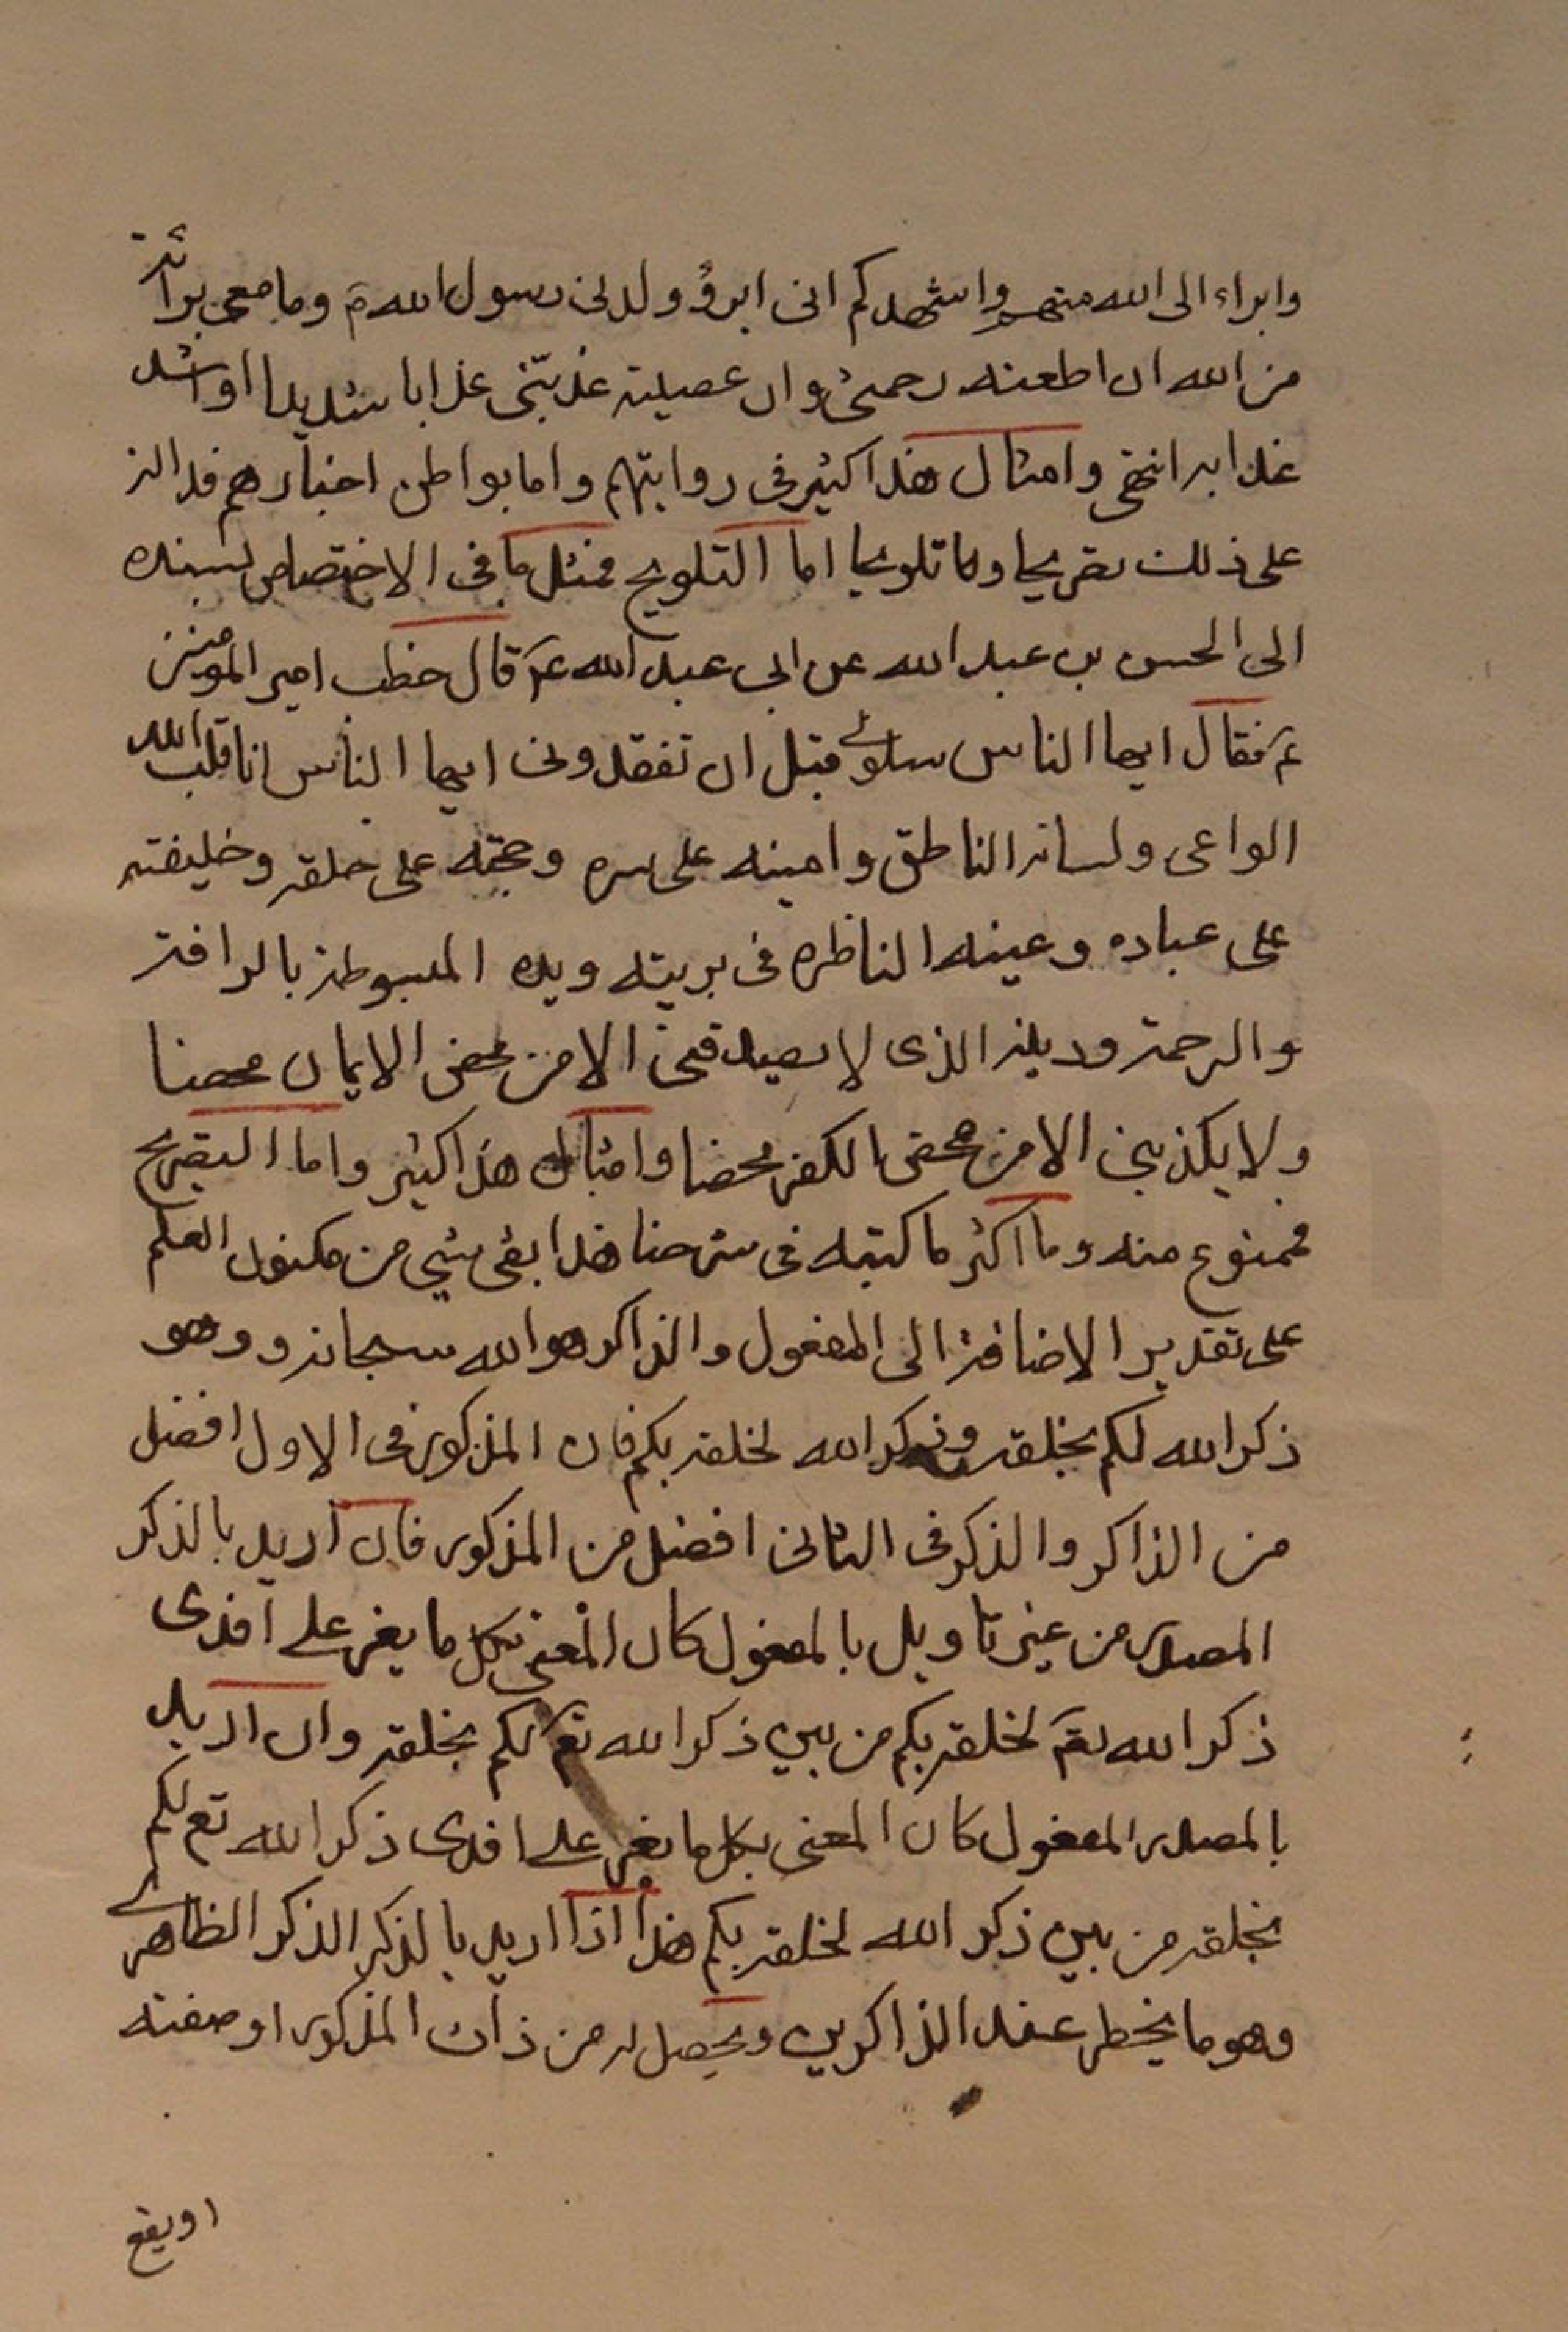 وابراء الى الله منهم واشهدكم انى ابرؤ ولدنى رسول الله ص وما معى برائة
من الله ان اطعته رحمنى وان عصيته عذبنى عذابا شديدا او اشد
عذابه انتهى وامثال هذا كثير فى رواياتهم واما بواطن اخبارهم فدالة
على ذلك تصريحا وتلويحا اما التلويح فمثل ما فى الاختصاص بسنده
الى الحسن بن عبد الله عن ابى عبد الله ع قال خطب امير المؤمنين
ع فقال ايها الناس سلونى قبل ان تفقدونى ايها الناس انا قلب الله
الواعى ولسانه الناطق وامينه على سره وحجته على خلقه وخليفته
على عباده وعينه الناظره فى بريته ويده المبسوطة بالرافة
والرحمة ودينه الذى لا يصدقنى الا من محض الايمان محضا
ولا يكذبنى الا من محض الكفر محضا وامثال هذا كثير واما التصريح
فممنوع منه وما اكثر ما كتبته فى شرحنا هذا بقى شىء من مكنون العلم
على تقدير الاضافة الى المفعول والذاكر هو الله سبحانه و وهو
ذكر الله لكم بخلقه وذكر الله لخلقه بكم فان المذكور فى الاول افضل
من الذاكر والذكر فى الثانى افضل من المذكور فان اريد بالذكر
المصدر من غير تاويل بالمفعول كان المعنى بكل ما يعز على افدى
ذكر الله تع لخلقه بكم من بين ذكر الله تع لكم بخلقه وان اريد
بالمصدر المفعول كان المعنى بكل ما يعز على افدى ذكر الله تع لكم
بخلقه من بين ذكر الله لخلقه بكم هذا اذا اريد بالذكر الذكر الظاهرى
وهو ما يخطر عند الذاكرين ويحصل له من ذات المذكور او صفته
او يقع